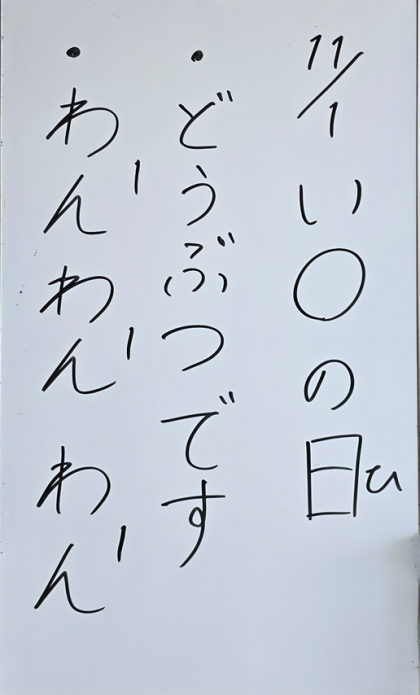 11/1 い○の日ひ
・どうぶつです
・わん1わん1わん1